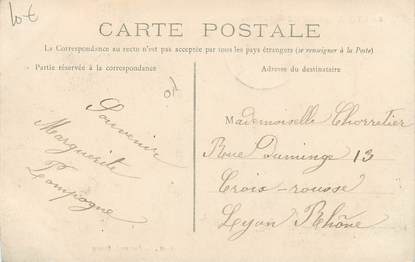 10€
CARTE POSTALE
La Correspondance au recto n'est pas acceptée par tous les pays étrangers (se renseigner à la Poste)
Partie réservée à la correspondance
Adresse du destinataire
Souvenir
Marguerite
Pompogne
Mademoiselle Thorretier
Rue Duminge 13
Croix-rousse
Lyon Rhône